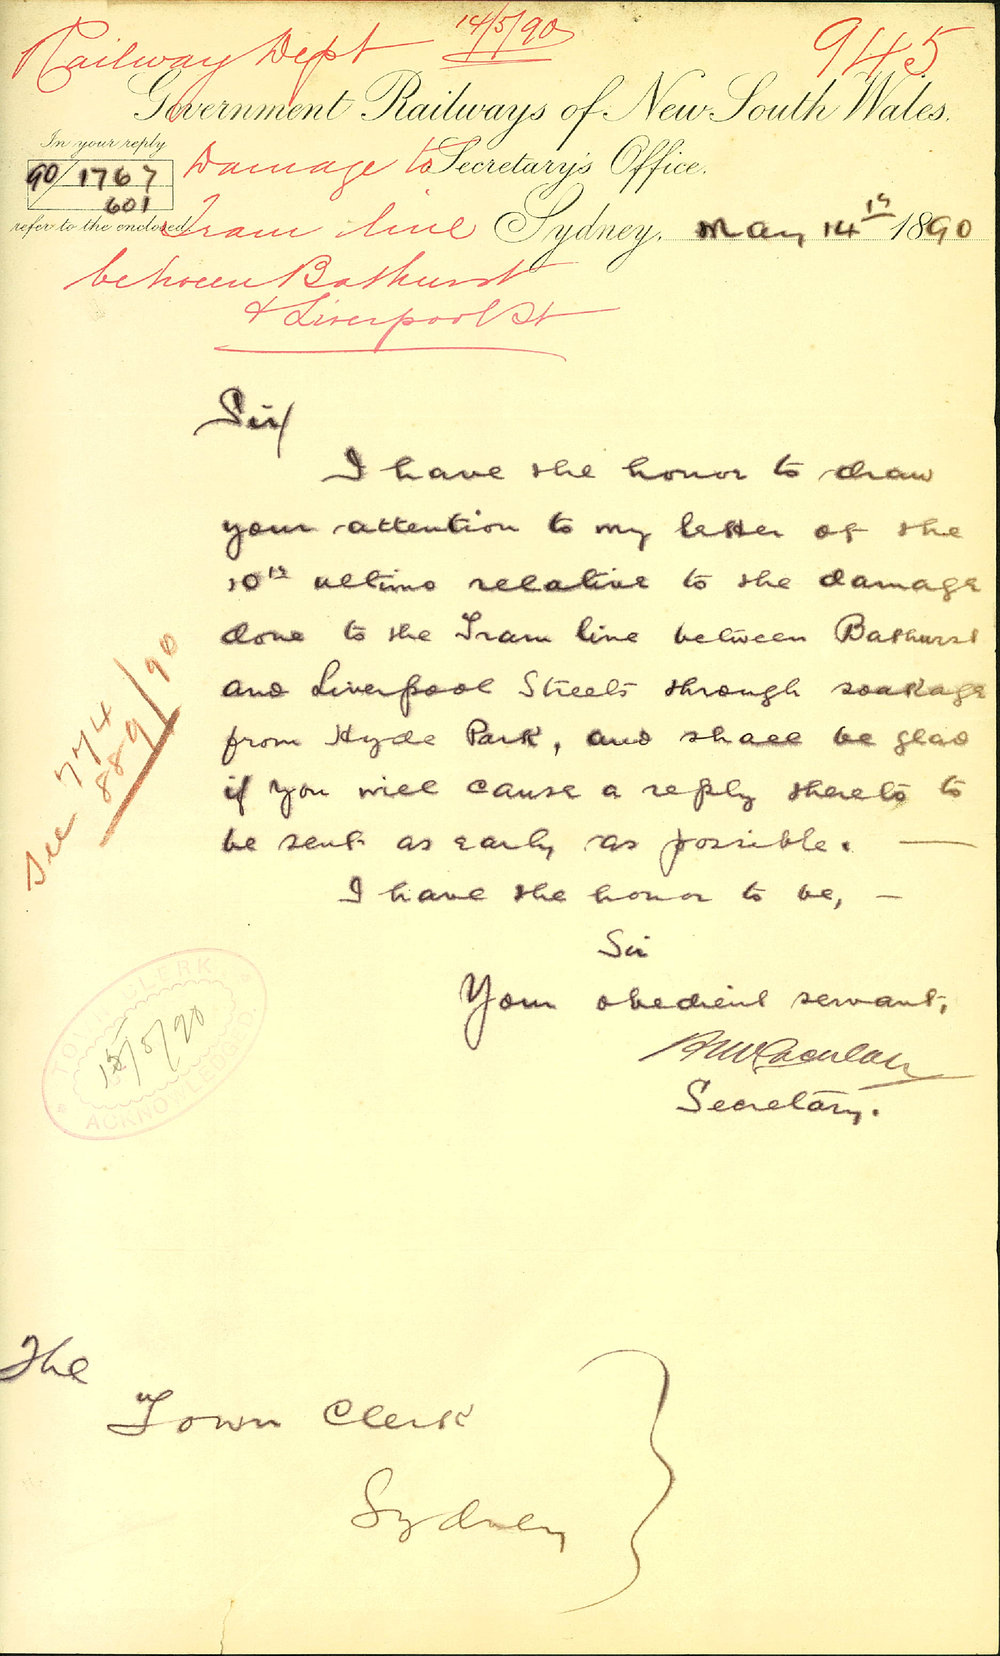 Railway Dept 14/5/90 945
Government Railways of New South Wales.
In your reply
90/1767
601
refer to the enclosed
Secretary's Office.
Sydney, May 14th 1890
Damage to
Tram line
between Bathurst
& Liverpool St
Sir/
I have the honor to draw
your attention to my letter of the
10th ultimo relative to the damage
done to the Tram line between Bathurst
and Liverpool Streets through soakage
from Hyde Park, and shall be glad
if you will cause a reply thereto to
be sent as early as possible. —
I have the honor to be, —
Sir
Your obedient servant,
Secretary.
See 774
889/90
TOWN CLERK
15/5/90
ACKNOWLEDGED
The
Town Clerk
Sydney